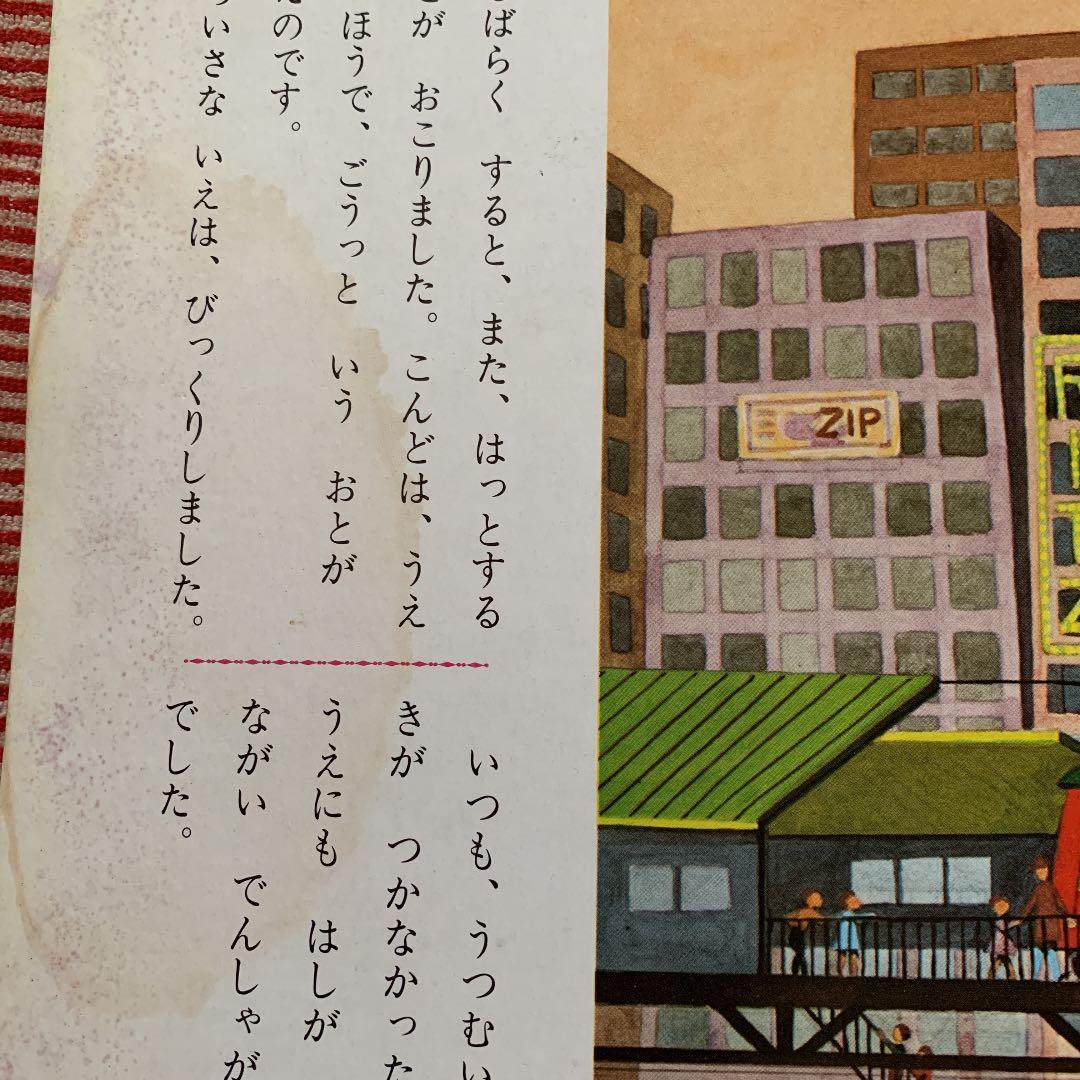 ばらく すると、また、はっとする
が おこりました。こんどは、うえ
ほうで、ごうっと いう おとが
のです。
いさな いえは、びっくりしました。
いつも、うつむい
きが つかなかった
うえにも はしが
ながい でんしゃが
でした。
ZIP